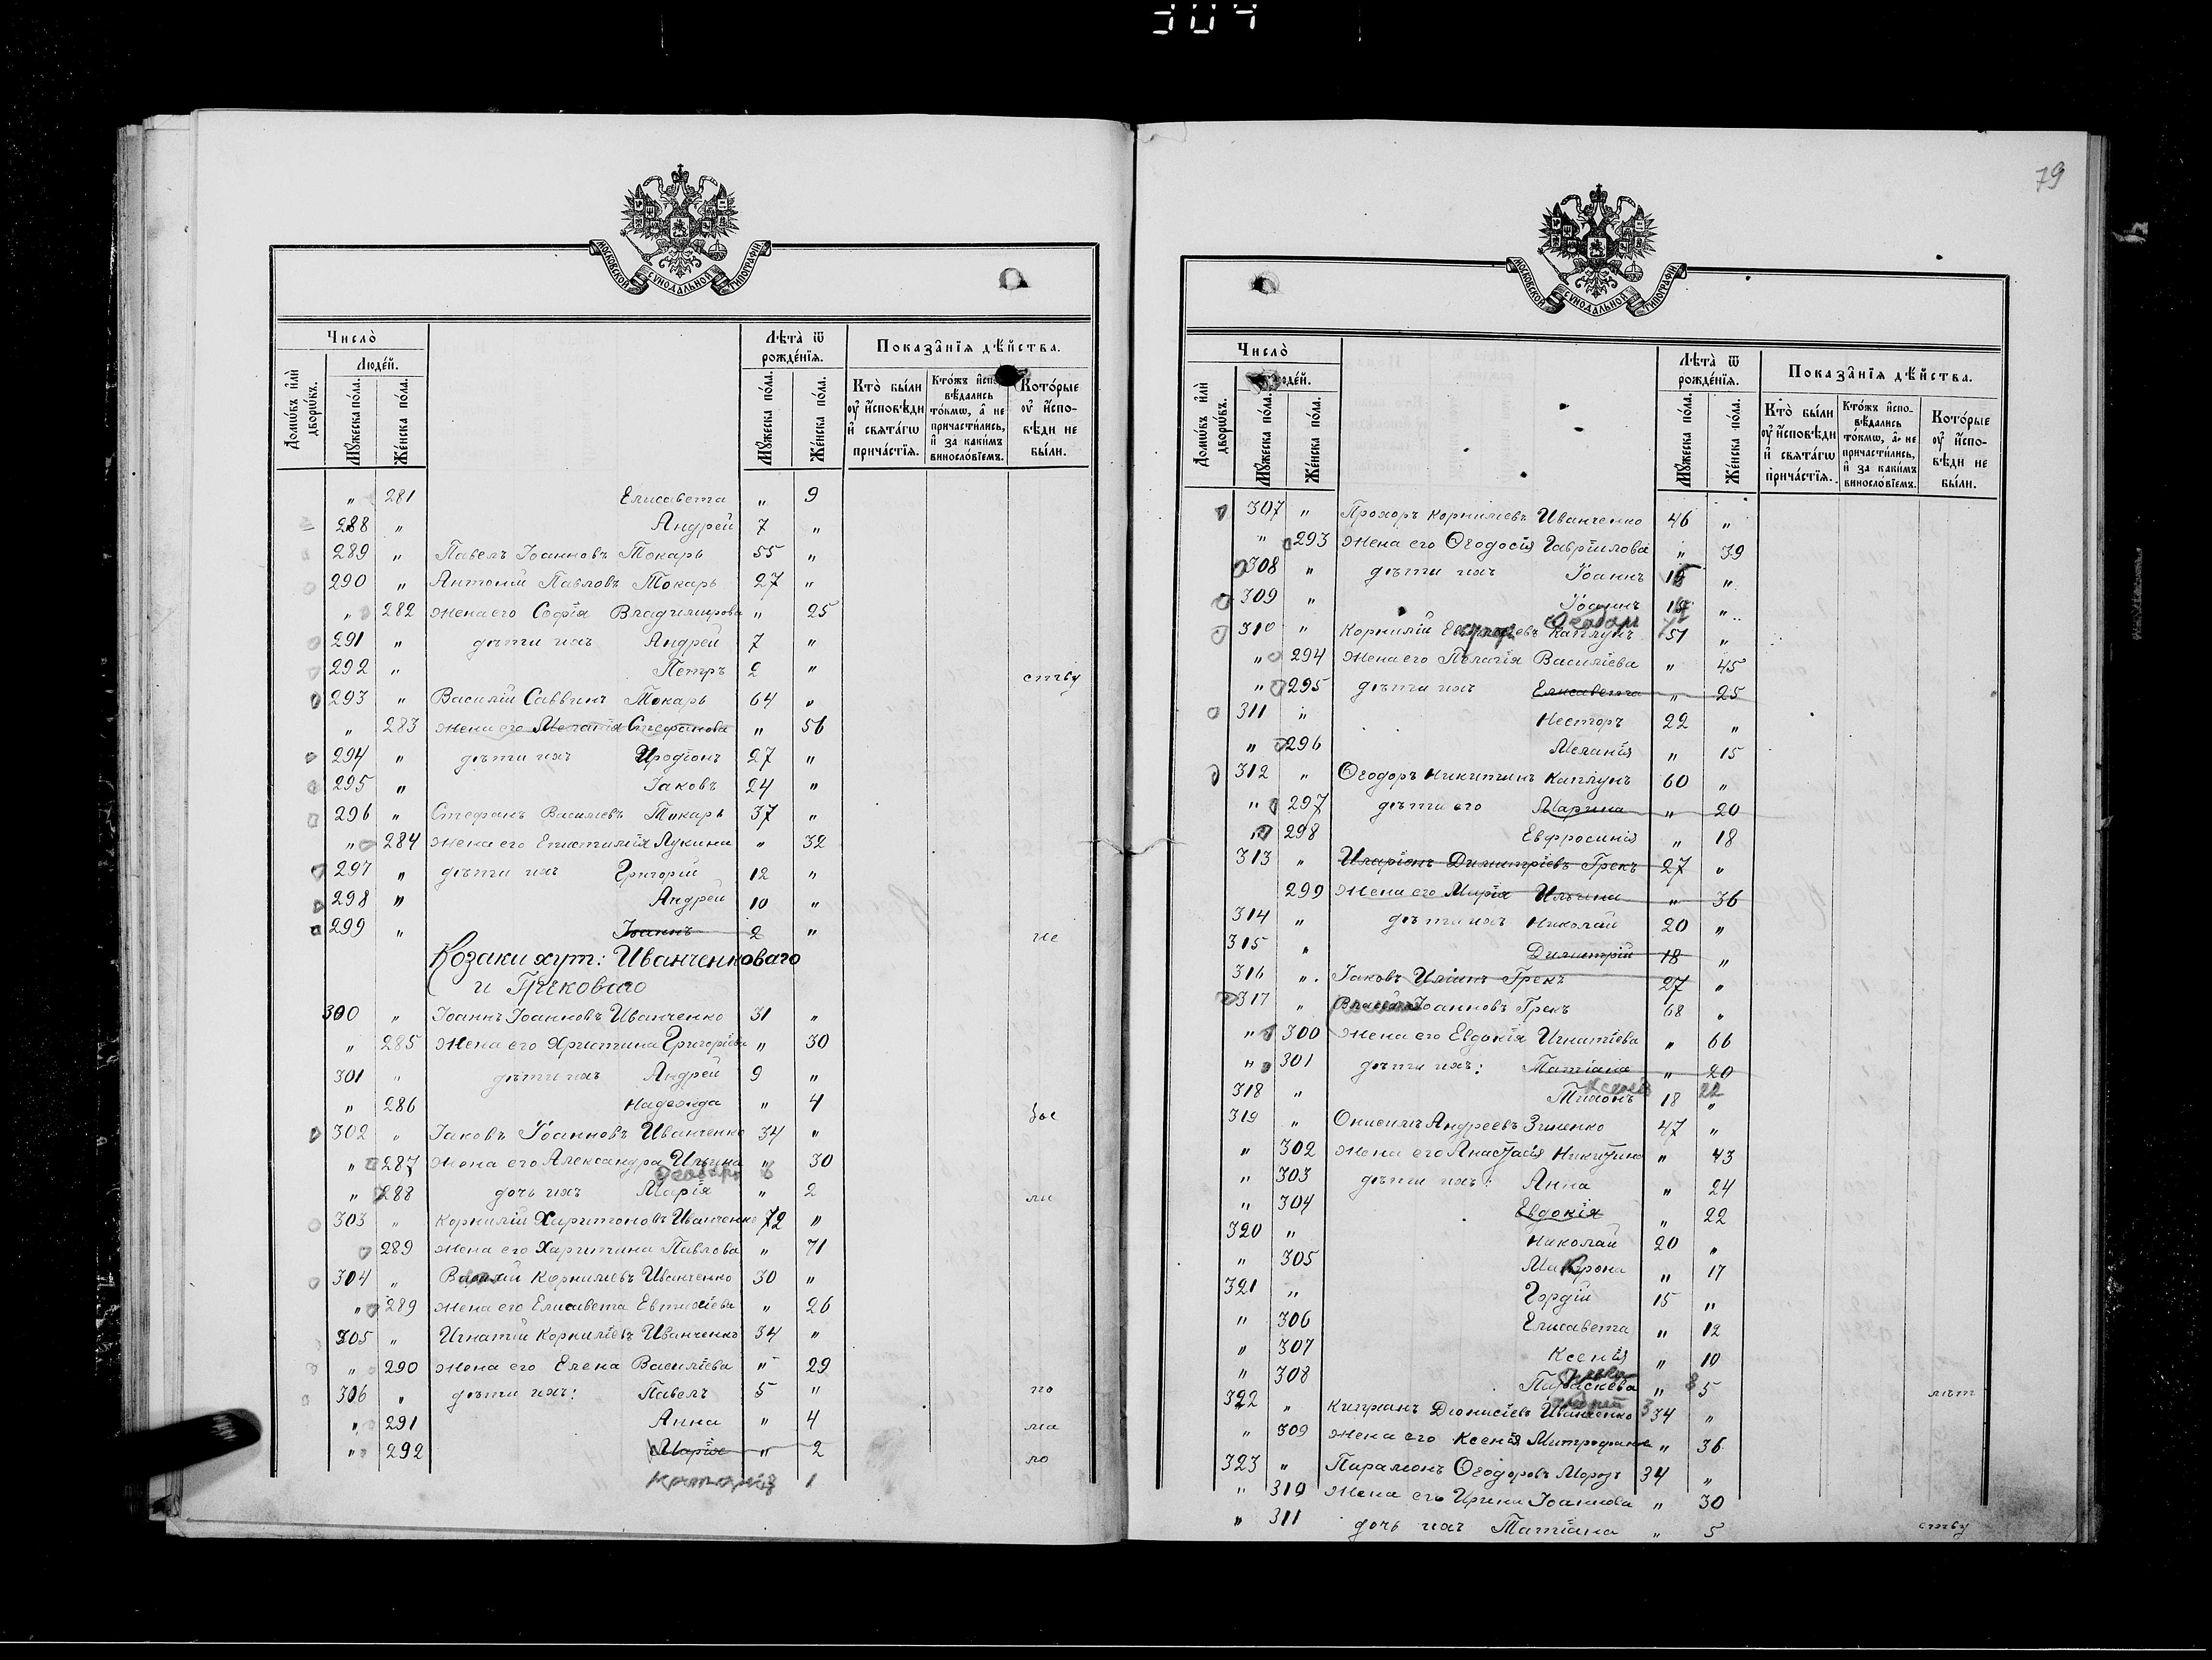 79
МОСКОВСКОЙ СѴНОДАЛЬНОЙ ТИПОГРАФІИ
Число̀
Людей.
Домѡвъ и҆лѝ дворѡвъ.
Мꙋжеска по́ла.
Же́нска по́ла.
Лѣ́та ѿ рожде́нїѧ.
Мꙋжеска по́ла.
Же́нска по́ла.
Показа̑нїѧ дѣ́йства.
Кто̀ бы́ли ᲂу҆ и҆́сповѣди и҆ свѧта́гѡ прича́стїѧ.
Кто́жъ и҆спо- вѣ́дались то́кмѡ, а҆ не причасти́лись, и҆ за каки́мъ винослові́емъ.
Кото́рые ᲂу҆ и҆́спо- вѣди не бы́ли.
" 281 Елисавета " 9
288 " Андрей 7 "
289 " Павелъ Іоанновъ Токарь 55 "
290 " Антоній Павловъ Токарь 27 "
" 282 Жена его Софія Владимирова " 25
291 " дѣти ихъ Андрей 7 "
292 " Петръ 2 " ству
293 " Василій Саввинъ Токарь 64 "
" 283 Жена его Меланія Стефанова " 56
294 " дѣти ихъ Иродіонъ 27 "
295 " Іаковъ 24 "
296 " Стефанъ Василіевъ Токарь 37 "
" 284 Жена его Епистимія Лукина " 32
297 " дѣти ихъ Григорій 12 "
298 " Андрей 10 "
299 " Іоаннъ 2 " не
Козаки хут: Иванченковаго
и Грековаго
300 " Іоаннъ Іоанновъ Иванченко 31 "
" 285 Жена его Христина Григоріева " 30
301 " дѣти ихъ Андрей 9 "
" 286 Надежда " 4
302 " Іаковъ Іоанновъ Иванченко 34 "
" 287 Жена его Александра Ильина " 30
" 288 дочь ихъ Марія " 2 ли
303 " Корнилій Харитоновъ Иванченко 72 "
289 Жена его Харитина Павлова " 71
304 " Корниліевъ Иванченко 30 "
" 289 Жена его Елисавета Евтихіева " 26
305 " Игнатій Корниліевъ Иванченко 34 "
" 290 Жена его Елена Василіева " 29
306 " дѣти ихъ: Павелъ 5 " по
" 291 Анна " 4 ма
" 292 Марія " 2 ло
1
МОСКОВСКОЙ СѴНОДАЛЬНОЙ ТИПОГРАФІИ
Число̀
Людей.
Домѡвъ и҆лѝ дворѡвъ.
Мꙋжеска по́ла.
Же́нска по́ла.
Лѣ́та ѿ рожде́нїѧ.
Мꙋжеска по́ла.
Же́нска по́ла.
Показа̑нїѧ дѣ́йства.
Кто̀ бы́ли ᲂу҆ и҆́сповѣди и҆ свѧта́гѡ прича́стїѧ.
Кто́жъ и҆спо- вѣ́дались то́кмѡ, а҆ не причасти́лись, и҆ за каки́мъ винослові́емъ.
Кото́рые ᲂу҆ и҆́спо- вѣди не бы́ли.
307 " Прохоръ Корниліевъ Иванченко 46 "
" 293 Жена его Ѳеодосія Гавріилова " 39
308 " дѣти ихъ Іоаннъ "
309 " Іоаннъ "
310 " Корнилій Каплунъ 51 "
" 294 Жена его Пелагія Василіева " 45
" 295 дѣти ихъ Елисавета " 25
311 " Несторъ 22 "
" 296 Меланія " 15
312 " Ѳеодоръ Никитинъ Каплунъ 60 "
" 297 дѣти его Марина " 20
" 298 Евфросинія " 18
313 " Иларіонъ Димитріевъ Грекъ 27 "
299 Жена его Марія Ильина " 36
314 " дѣти ихъ Николай 20 "
315 " Димитрій 18 "
316 " Іаковъ Иліинъ Грекъ 27 "
317 " Іоанновъ Грекъ 68 "
" 300 Жена его Евдокія Игнатіева " 66
" 301 дѣти ихъ: Татіана " 20
318 " Тихонъ 18 "
22
319 " Онисимъ Андреевъ Зиненко 47 "
" 302 Жена его Анастасія Никитина " 43
" 303 дѣти ихъ: Анна " 24
" 304 Евдокія " 22
320 " Николай 20 "
" 305 Матрона " 17
321 " Гордій 15 "
" 306 Елисавета " 12
" 307 Ксенія " 10
" 308 Параскева " 5 лѣт
322 " Кипріанъ Діонисіевъ Иванченко 34 "
" 309 Жена его Ксенія Митрофанова " 36
323 " Парамонъ Ѳеодоровъ Морозъ 34 "
" 310 Жена его Ирина Іоаннова " 30
" 311 дочь ихъ Татіана " 5 ству